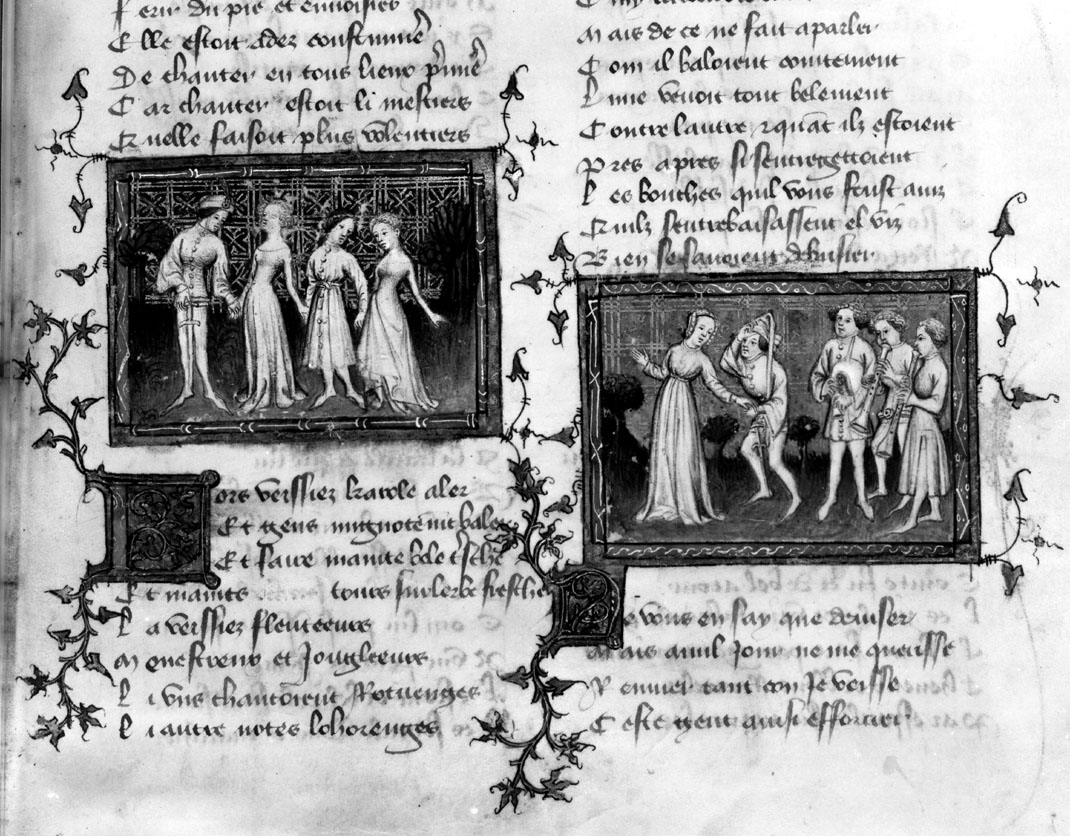 Ferir du pie et enuoisier
Elle estoit adez coustumie
De chanter en tous lieux
Car chanter estoit li mestiers
Quelle faisoit plus volentiers
Lors verssiez karole aler
Et gens mignotemt baler
Et faire mainte bele tresche
Et maints tours sur lerbe fresche
La verssiez fleuteeurs
Menestreux et Jougleeurs
Li vns chantoient Rotuenges
Li autre notes lohorenges
Mais de ce ne fait a parler
Com il baloient cointement
Lune venoit tout belement
Contre lautre et quant ilz estoient
Pres apres si sentregettoient
Les bouches quil vous feust auiz
Quilz sentrebaisassent el viz
Bien se sauoient debrisier
Ne vous en say que deuiser
Mais a nul Jour ne me queisse
Remuer tant com Je veisse
Ceste gent ainsi efforcier